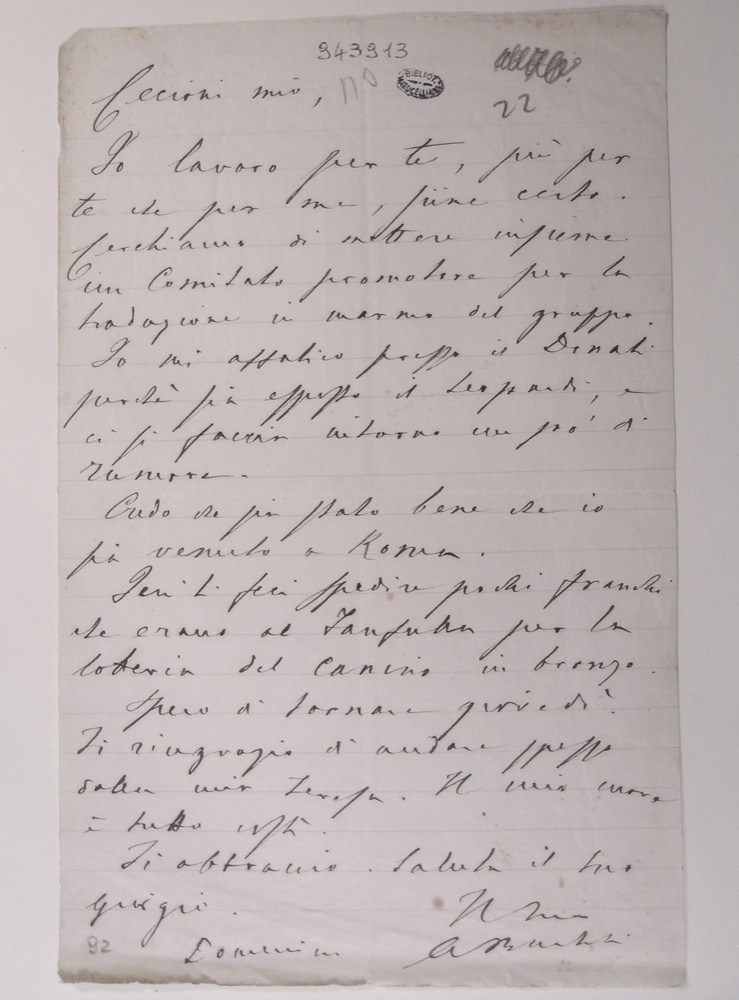 943913
BIBLIOT. MARUCELLIANA
22
Cecioni mio,
Io lavoro per te, più per
te che per me, siine certo.
Cerchiamo di mettere insieme
un Comitato promotore per la
traduzione in marmo del gruppo.
Io mi affatico presso il Donati
perchè sia espresso il Leopardi, e
ci si faccia intorno un pò di
rumore.
Credo che sia stato bene che io
sia venuto a Roma.
Jeri ti feci spedire pochi franchi
che erano al Fanfulla per la
lotteria del canino in bronzo.
Spero di tornare giovedì.
Ti ringrazio di andare spesso
dalla mia Teresa. Il mio cuore
è tutto costà.
Ti abbraccio. Saluta il tuo
Giorgio.
Il tuo
Domenica
92